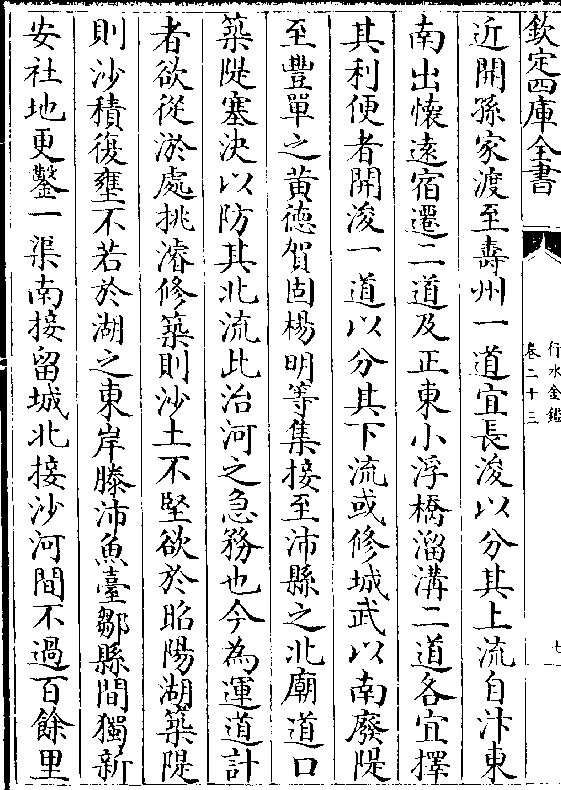 欽定四庫全書
行水金鑑
卷二十三
七
近開孫家渡至壽州一道宜長浚以分其上流自汴東
南出懷遠宿遷二道及正東小浮橋溜溝二道各宜擇
其利便者開浚一道以分其下流或修城武以南廢隄
至豐單之黄德賀固楊明等集接至沛縣之北廟道口
築隄塞決以防其北流此治河之急務也今為運道計
者欲從淤處挑濬修築則沙土不堅欲於昭陽湖築隄
則沙積復壅不若於湖之東岸滕沛魚臺鄒縣間獨新
安社地更鑿一渠南接留城北接沙河間不過百餘里